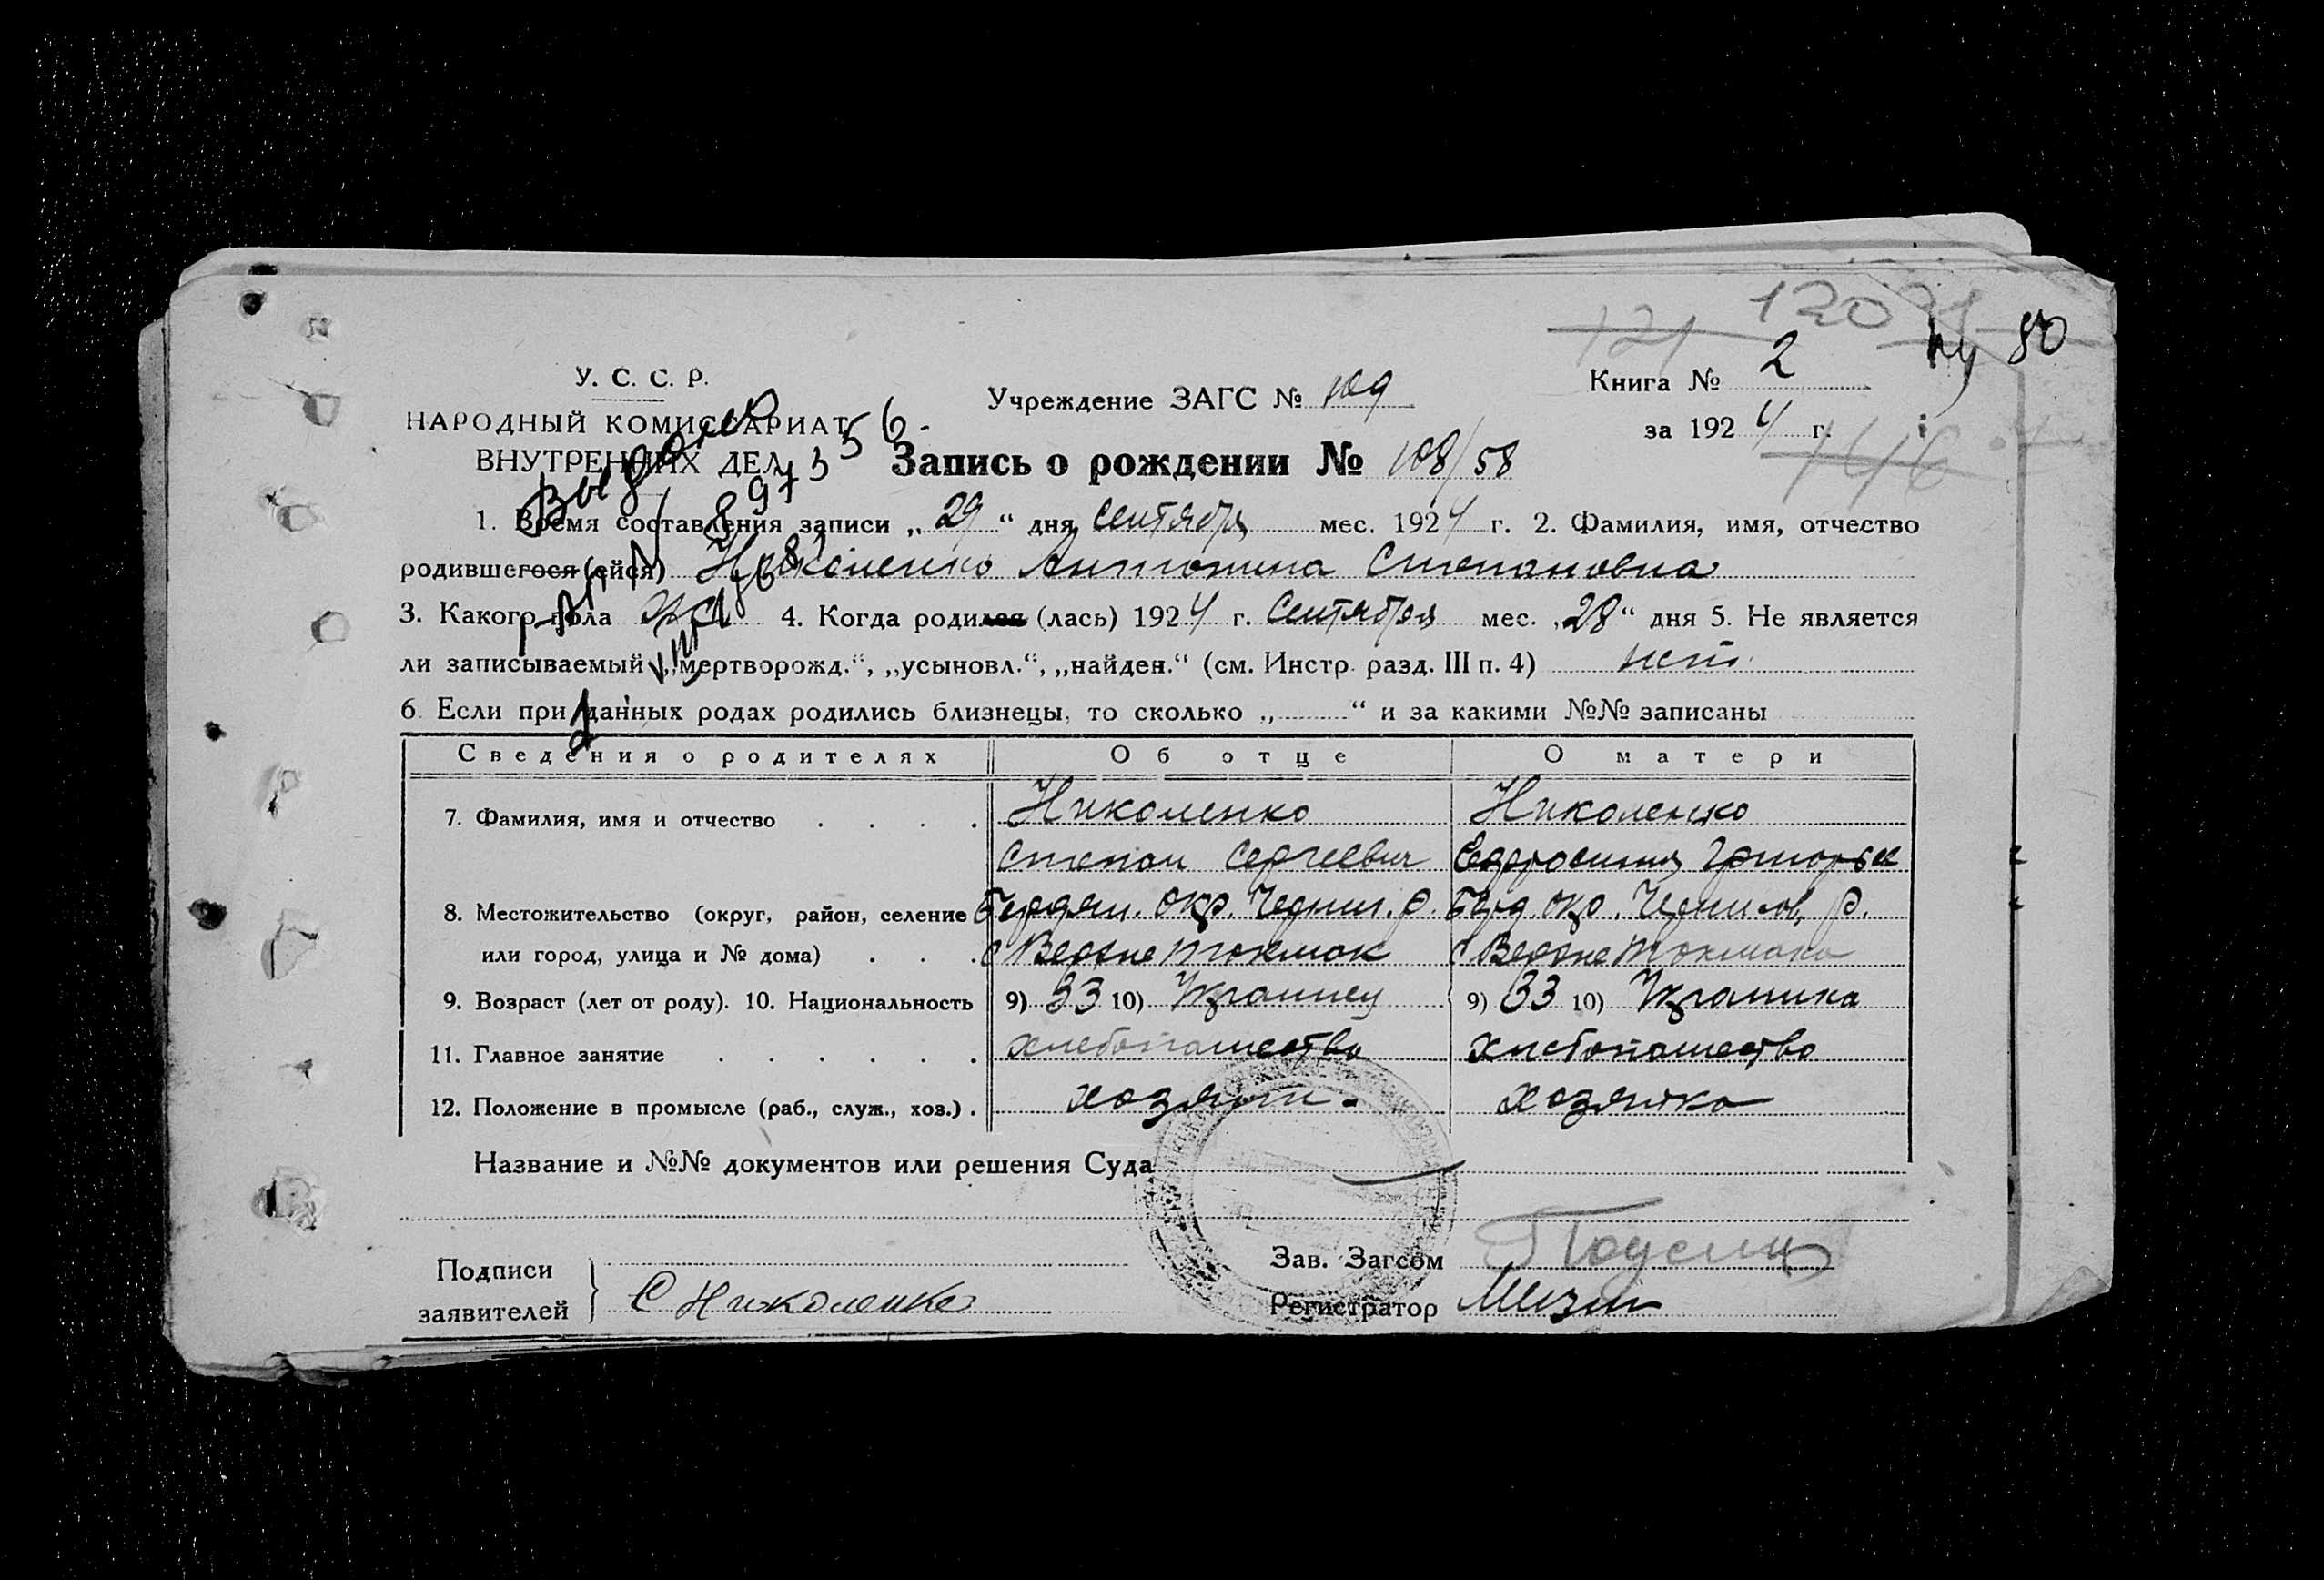 120
121
80
У. С. С. Р.
Учреждение ЗАГС № 109
Книга № 2
НАРОДНЫЙ КОМИССАРИАТ
за 1924 г.
ВНУТРЕННИХ ДЕЛ
Запись о рождении № 108/58
1. Время составления записи „29“ дня сентября мес. 1924 г. 2. Фамилия, имя, отчество
родившегося (ейся) Николенко Антонина Степановна
3. Какого пола 4. Когда родился (лась) 1924 г. сентября мес. „28“ дня 5. Не является
ли записываемый „мертворожд.“, „усыновл.“, „найден.“ (см. Инстр. разд. III п. 4) нет
6. Если при данных родах родились близнецы, то сколько „ “ и за какими №№ записаны
Сведения о родителях Об отце О матери
7. Фамилия, имя и отчество Николенко Николенко
Степан Сергеевич
8. Местожительство (округ, район, селение Бердян. окр. Черниг. р. Берд. окр. Черниговс. р.
или город, улица и № дома) с Верхне Токмак с Верхне Токмака
9. Возраст (лет от роду). 10. Национальность 9) 33 10) Украинец 9) 33 10) Украинка
11. Главное занятие хлебопашество хлебопашество
12. Положение в промысле (раб., служ., хоз.) хозяин хозяйка
Название и №№ документов или решения Суда
Подписи
заявителей С Николенко
Зав. Загсом
Регистратор
Выдано